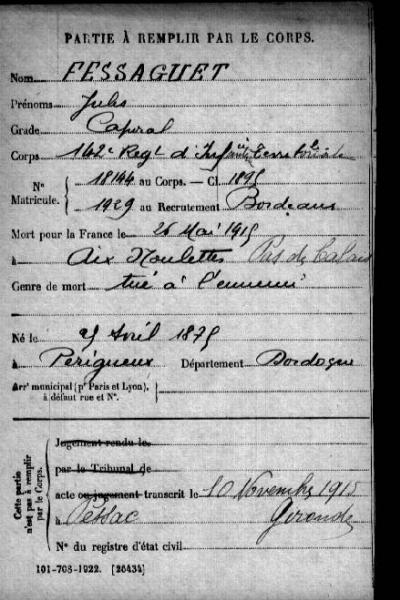 PARTIE À REMPLIR PAR LE CORPS.
Nom FESSAGUET
Prénoms Jules
Grade Caporal
Corps 142e Regt d'Infanterie Territoriale
N° Matricule. 18144 au Corps. — Cl. 1895
1929 au Recrutement Bordeaux
Mort pour la France le 26 Mai 1915
à Aix Noulettes Pas de Calais
Genre de mort tué à l'ennemi
Né le Avril 1875
à Périgueux Département Dordogne
Arrt municipal (pr Paris et Lyon), à défaut rue et N°.
Cette partie n'est pas à remplir par le Corps.
Jugement rendu le
par le Tribunal de
acte ou jugement transcrit le 10 Novembre 1915
à Pessac Gironde
N° du registre d'état civil
101-708-1922. [26434]